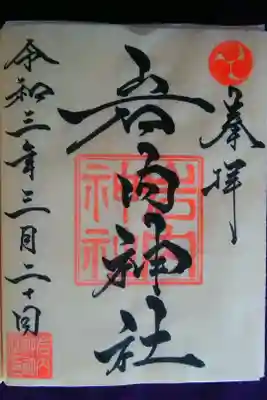 奉拝
岩内神社
岩内
神社
令和三年三月二十日